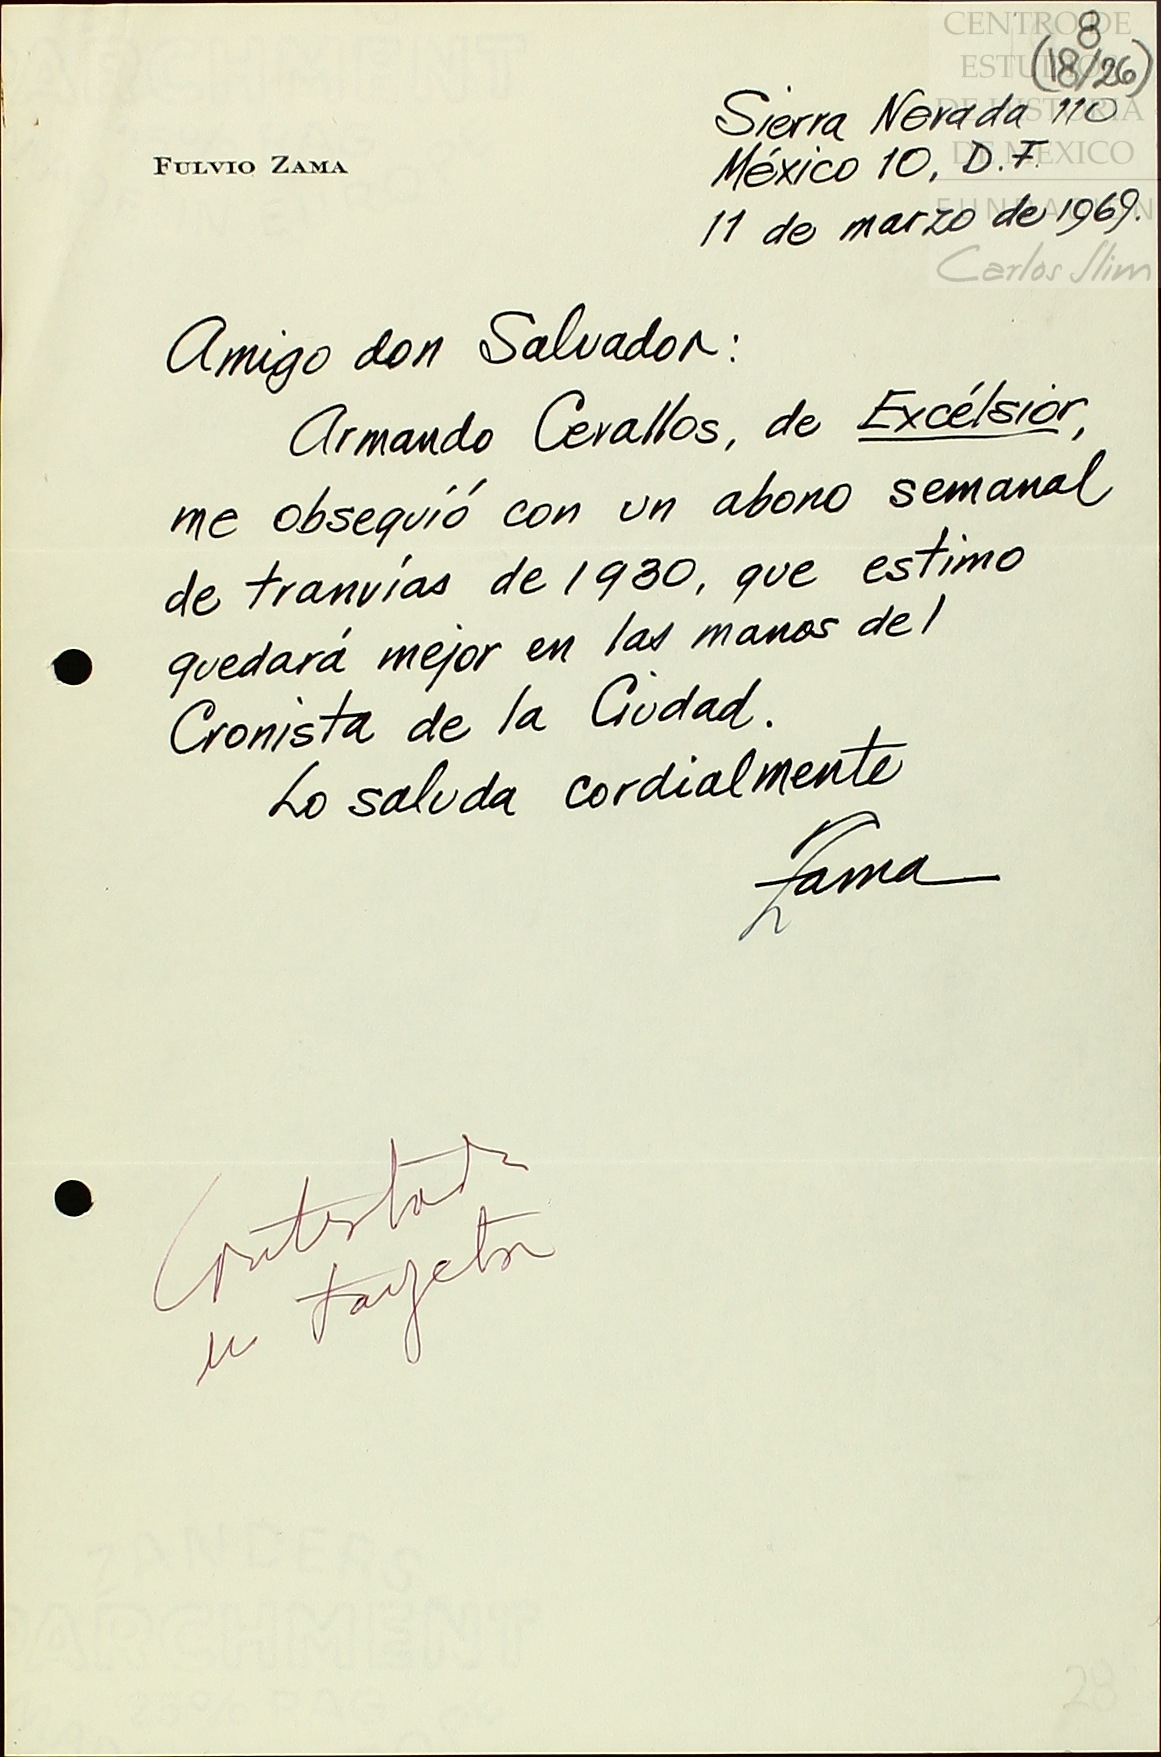 CENTRO DE
ESTUDIOS
DE HISTORIA
DE MEXICO
FUNDACIÓN
Carlos Slim
8
(18/26)
Sierra Nevada 110
México 10, D.F.
11 de marzo de 1969.
FULVIO ZAMA
Amigo don Salvador:
Armando Cevallos, de Excélsior,
me obsequió con un abono semanal
de tranvías de 1930, que estimo
quedará mejor en las manos del
Cronista de la Ciudad.
Lo saluda cordialmente
Zama
Contestada
en tarjeta
ZANDERS
PARCHMENT
28